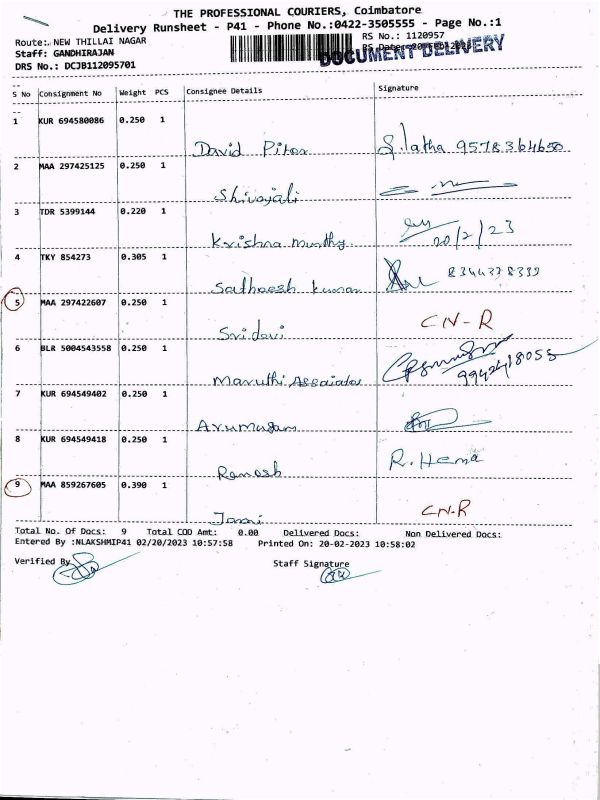 THE PROFESSIONAL COURIERS, Coimbatore
Delivery Runsheet - P41 - Phone No.:0422-3505555 - Page No.:1
Route: NEW THILLAI NAGAR
RS No.: 1120957
Staff: GANDHIRAJAN
RS Date: 20-Feb-2023
DOCUMENT DELIVERY
DRS No.: DCJB112095701
S No Consignment No Weight PCS Consignee Details Signature
1 KUR 694580086 0.250 1
David Pitor S.latha 9578364650
2 MAA 297425125 0.250 1
Shivajali
3 TDR 5399144 0.220 1
Krishna Murthy 20/2/23
4 TKY 854273 0.305 1
Satheesh kumar 8344378339
5 MAA 297422607 0.250 1
Sridevi CN-R
6 BLR 5004543558 0.250 1
Maruthi Associates
7 KUR 694549402 0.250 1
Arumugam
8 KUR 694549418 0.250 1
Ramesh R.Hema
9 MAA 859267605 0.390 1
CN-R
Total No. Of Docs: 9 Total COD Amt: 0.00 Delivered Docs: Non Delivered Docs:
Entered By :NLAKSHMIP41 02/20/2023 10:57:58 Printed On: 20-02-2023 10:58:02
Verified By
Staff Signature